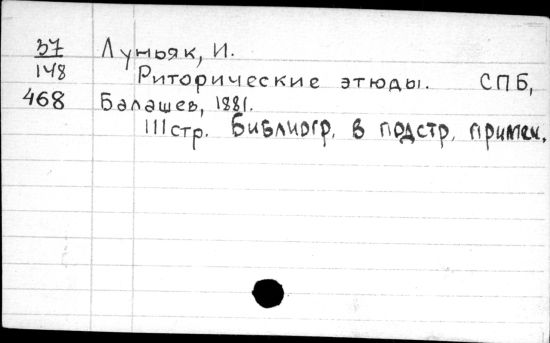 37 Луньяк, И.
148 Риторические этюды. СПБ,
468 Балашев, 1881.
111 стр. Библиогр. в подстр. примеч.